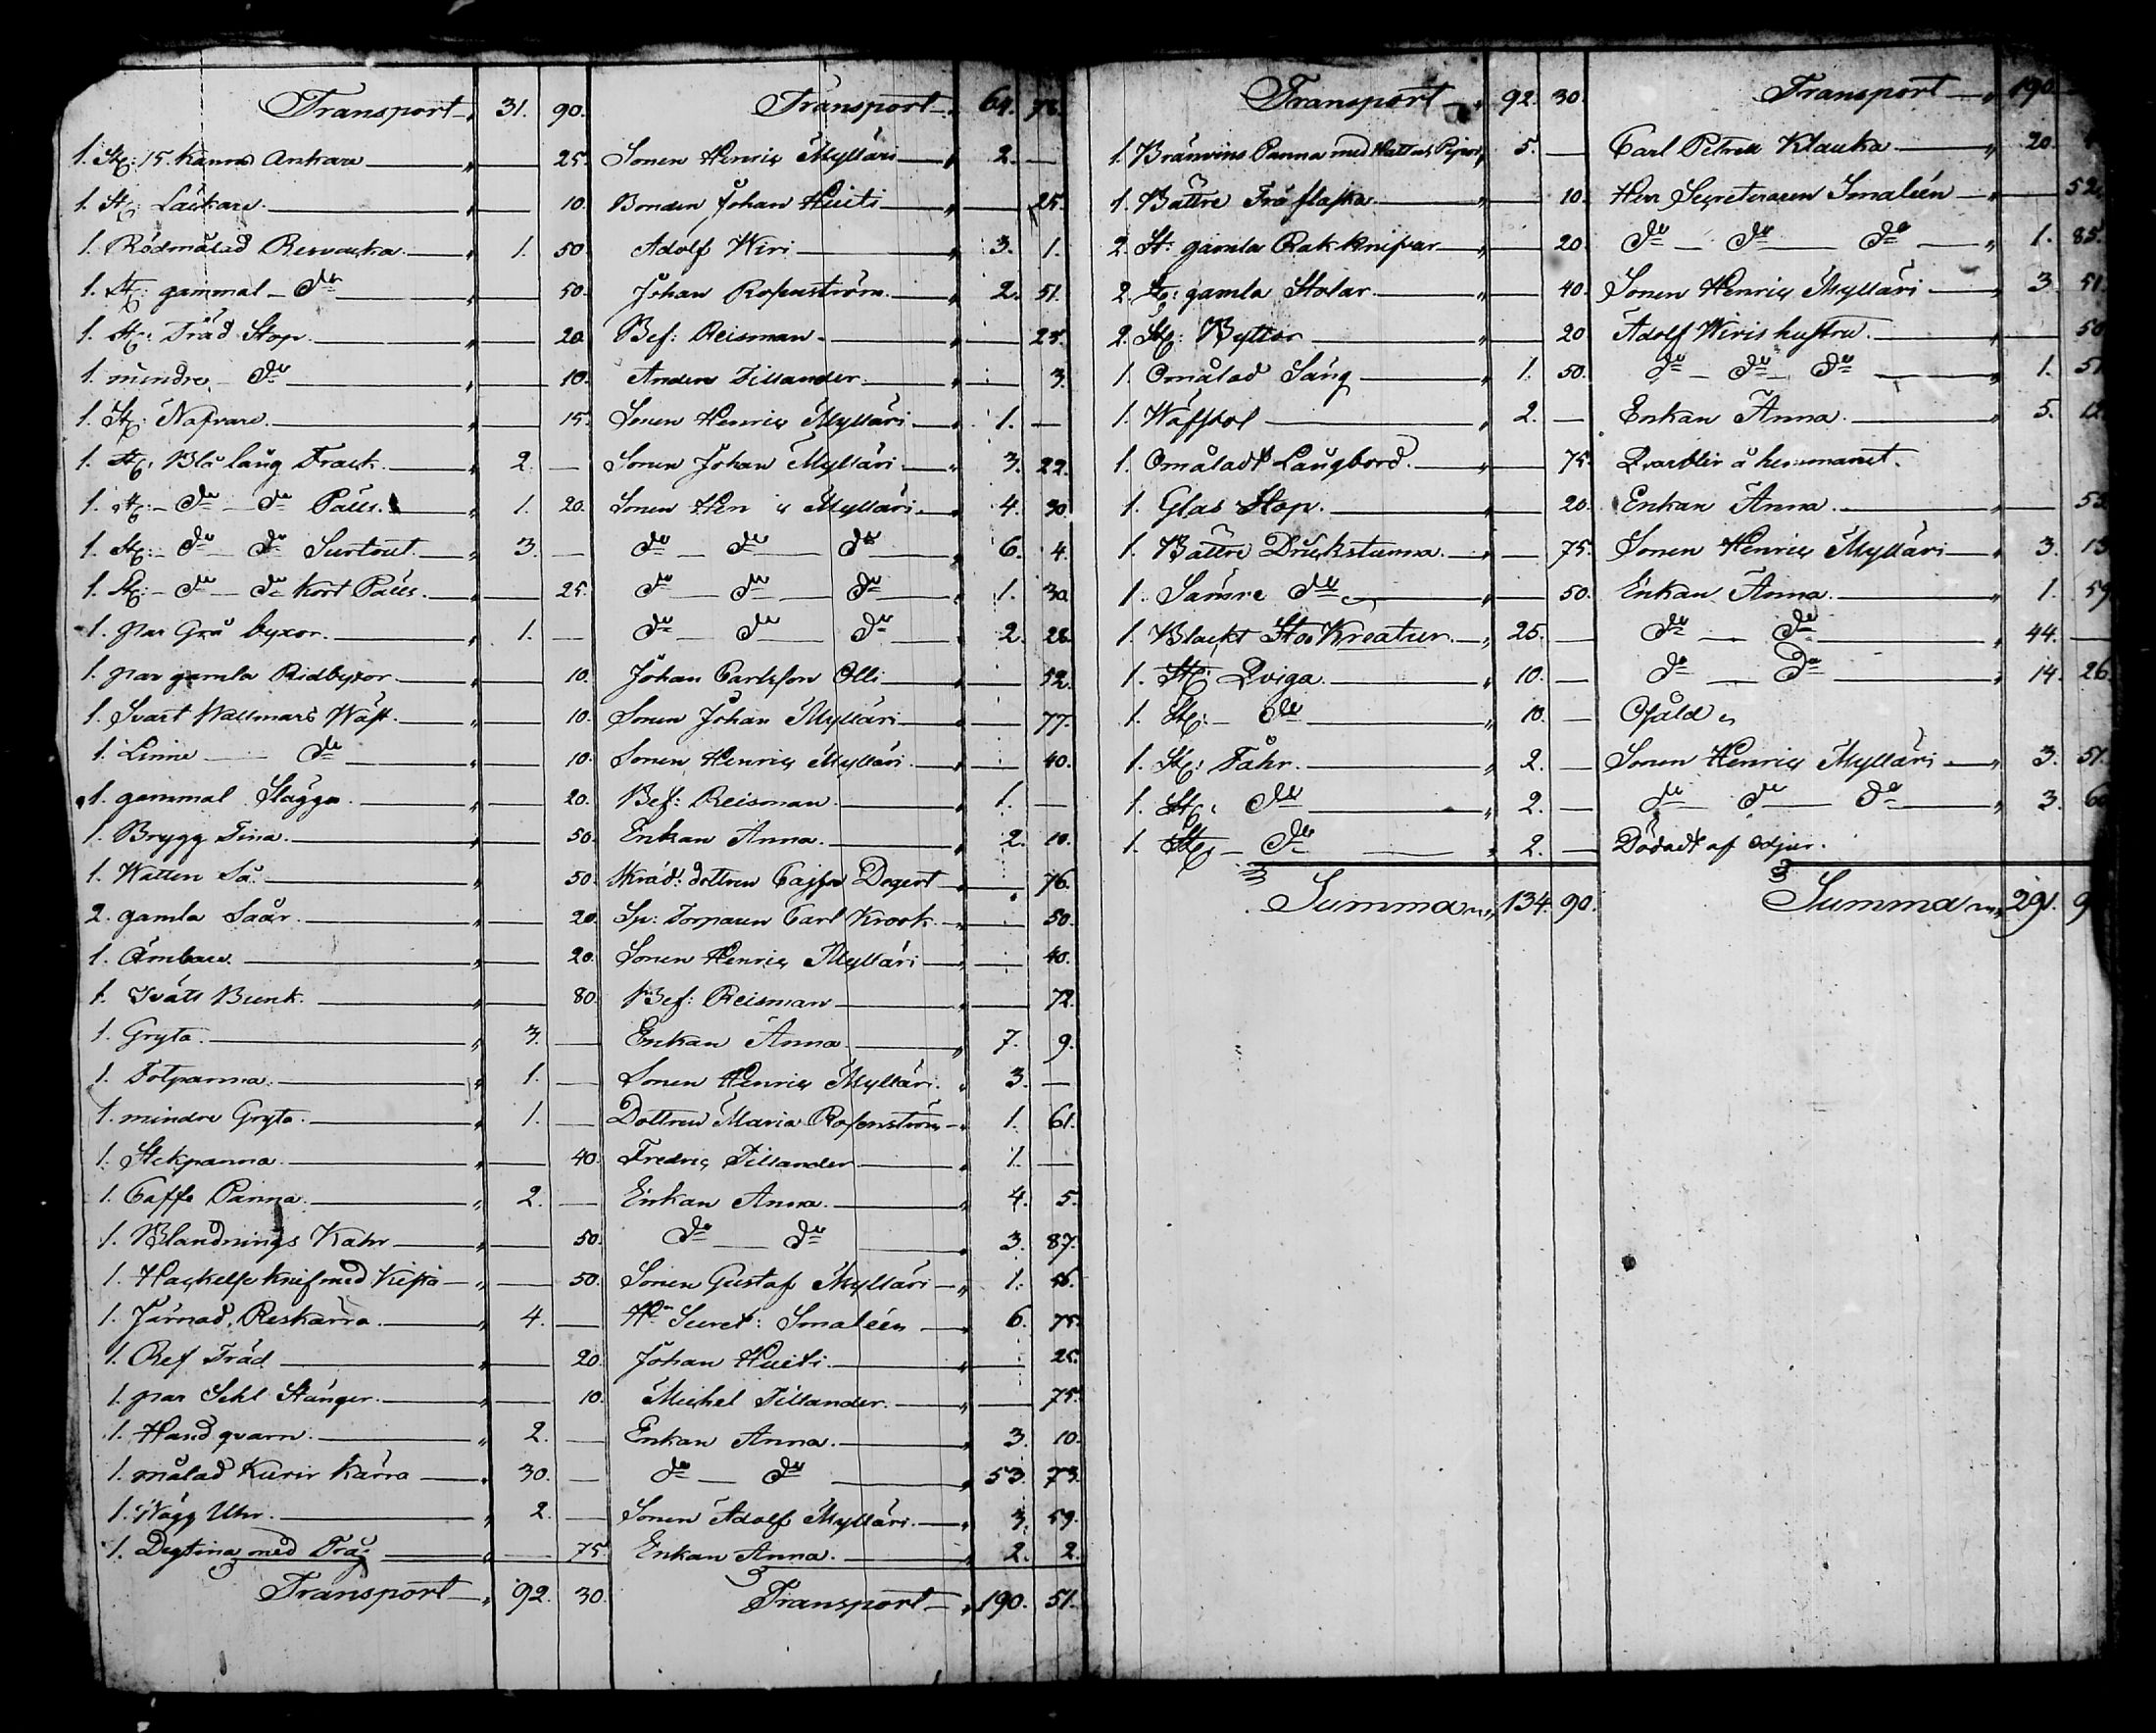 Transport 31. 90. Transport 64. 78.
1. St: 15. Kanns Ankare 25. Sonen Henric Mÿlläri 2. —
1. St: Läckare 10. Bonden Johan Huiti 25.
1. Rödmålad Resvacka 1. 50. Adolf Wiri 3. 1.
1. St: gammal do 50. Johan Rosenström 2. 51.
1. St: Träd Stop 20. Bef: Reisman 25.
1. mindre do 10. Anders Tillander 3.
1. St: Nafvare 15. Sonen Henric Mÿlläri 1. —
1. St: Blå lång Frack 2. — Sonen Johan Mÿlläri 3. 22.
1. St: do do Pälls 1. 20. Sonen Hen ic Mÿlläri 4. 30.
1. St: do do Surtout 3. — do do do 6. 4.
1. St: do do Kort Pälls 25. do do do 1. 30.
1. par Grå byxor 1. — do do do 2. 28.
1. par gamla Ridbyxor 10. Johan Carlsson Olli 52.
1. Svart Wallmars Wäst 10. Sonen Johan Mÿlläri 77.
1. Linne do 10. Sonen Henric Mÿlläri 40.
1. gammal Slägga 20. Bef: Reisman 1. —
1. Brygg Tina 50. Enkan Anna 2. 10.
1. Watten Så 50. Skräd: dottren Cajsa Degert 76.
2. gamla Såår 20. Sp: Torparen Carl Krook 50.
1. Ämbare 20. Sonen Henric Mÿlläri 40.
1. Tvätt Bunk 80. Bef: Reisman 72.
1. Gryta 3. — Enkan Anna 7. 9.
1. Fotpanna 1. — Sonen Henric Mÿlläri 3. —
1. mindre Gryta 1. — Dottren Maria Rosenström 1. 61.
1. Stekpanna 40. Fredric Tillander 1. —
1. Caffe Panna 2. — Enkan Anna 4. 5.
1. Blandnings Kahr 50. do do 3. 87.
1. Hackelse knif med Kista 50. Sonen Gustaf Mÿlläri 1. 46.
1. Järnad Reskärra 4. — Hr Secret: Smaléén 6. 75.
1. Ref Träd 20. Johan Huiti 25.
1. par Sehl Stänger 10. Michel Tillander 75.
1. Hand qvarn 2. — Enkan Anna 3. 10.
1. målad Kurir Kärra 30. — do do 53. 73.
1. Wägg Uhr 2. — Sonen Adolf Mÿlläri 3. 59.
1. Degtina med Tråg 75. Enkan Anna 2. 2.
Transport 92. 30. Transport 190. 51.
Transport 92. 30. Transport 190.
1. Bränvins Panna med Hatt och Pipor 5. — Carl Petter Klauka 20.
1. Bättre Träflaska 10. Herr Secreteraren Smaléén 52.
2. St: gamla Rakknifvar 20. do do do 1. 85.
2. St: gamla Stolar 40. Sonen Henric Mÿlläri 3. 51.
2. St: Byttor 20. Adolf Wiris hustru 50
1. Omålad Säng 1. 50. do do do 1. 51
1. Wäfstol 2. — Enkan Anna 5. 12.
1. Omåladt Långbord 75. Qvarblir å hemmanet.
1. Glas Stop 20. Enkan Anna 53
1. Bättre Drickstunna 75. Sonen Henric Mÿlläri 3. 13
1. Sämre do 50. Enkan Anna 1. 59
1. Blackt Sto Kreatur 25. — do do 44. —
1. St: Qviga 10. — do do 14. 26.
1. St: do 10. — Osåld
1. St: Fåhr 2. — Sonen Henric Mÿlläri 3. 51.
1. St: do 2. — do do do 3. 60
1. St: do 2. — Dödadt af odjur.
Summa 134. 90. Summa 291. 9